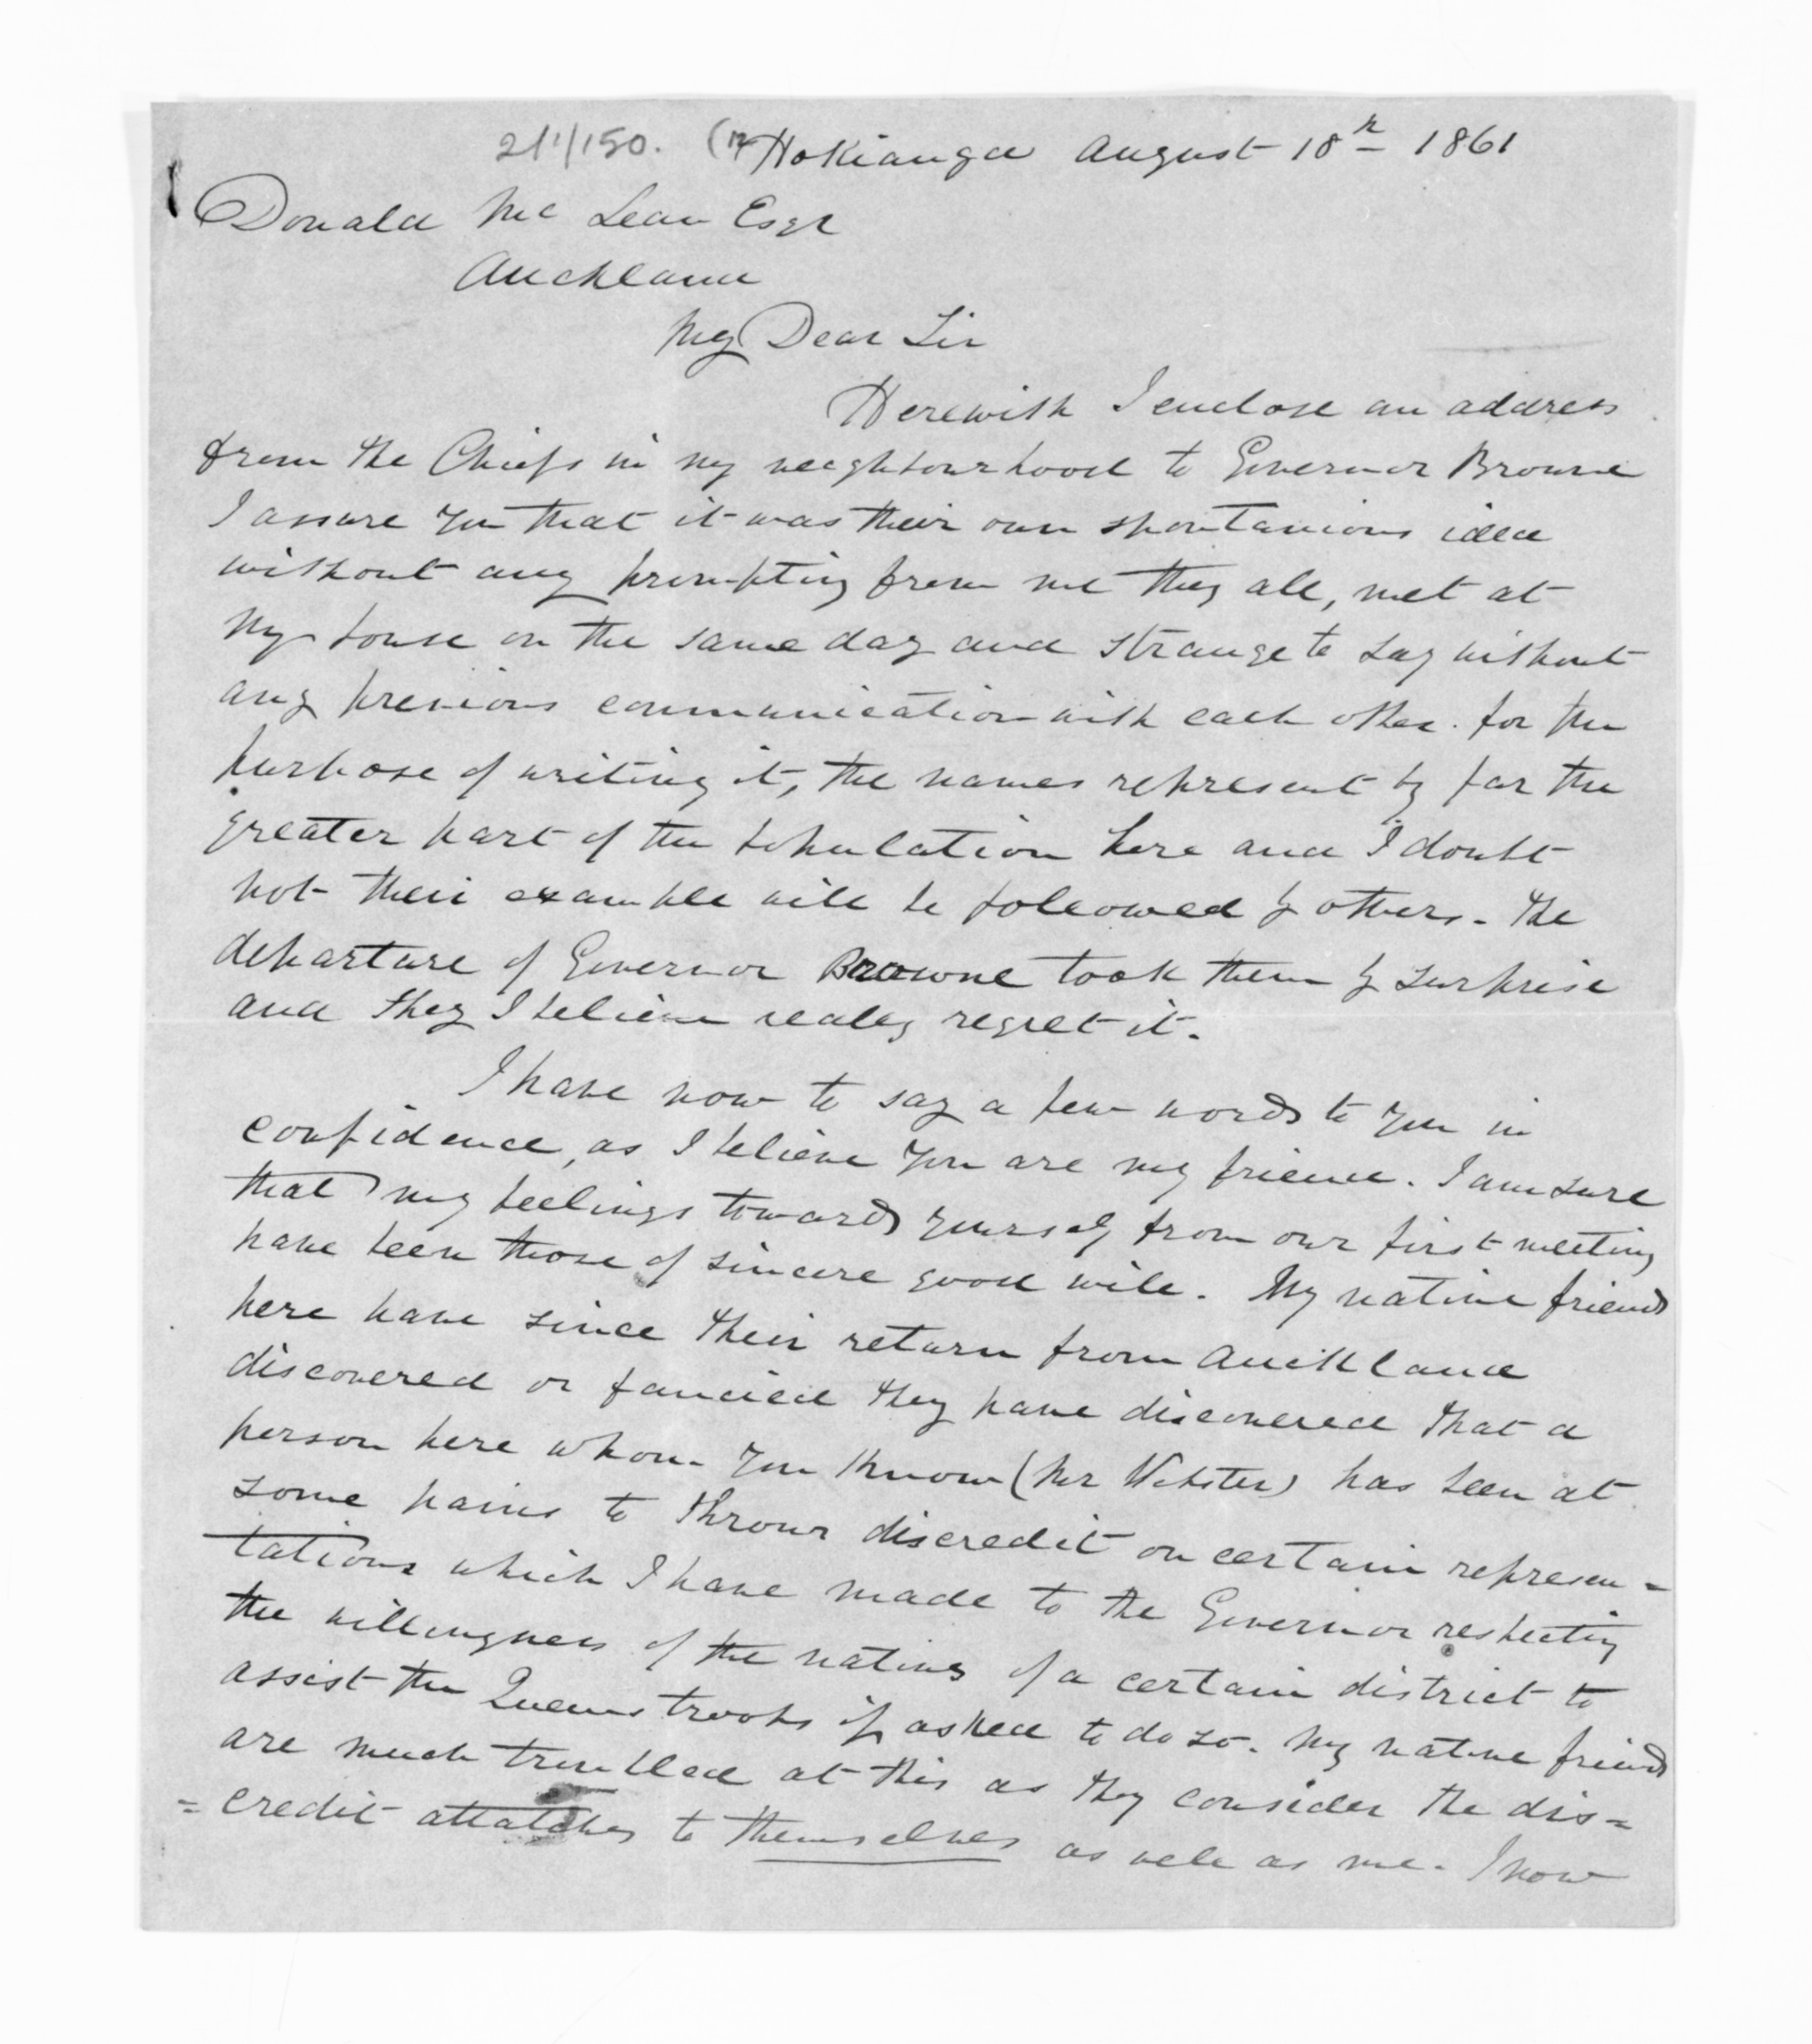 211/150. Hokianga August 18th 1861
Donald Mc Lean Esqr
Auckland
My Dear Sir
Herewith I enclose an address
from the Chiefs in my neighbourhood to Governor Browne
I assure you that it was their own spontanious idea
without any prompting from me they all, met at
my house on the same day and strange to say without
any previous communication with each other. for the
purpose of writing it, the names represent by far the
greater part of the population here and I doubt
not their example will be followed by others. The
departure of Governor Browne took them by surprise
and they I believe really regret it.
I have now to say a few words to you in
confidence, as I believe you are my friend. I am sure
that my feelings towards yourself from our first meeting
have been those of sincere good will. My native friends
here have since their return from Auckland
discovered or fancied they have discovered that a
person here whom you know (Mr Webster) has been at
some pains to throw discredit on certain represen=
tations which I have made to the Governor respecting
the willingness of the natives of a certain district to
assist the Queens troops if asked to do so. My native friends
are much troubled at this as they consider the dis=
=credit attatches to themselves as well as me. I now